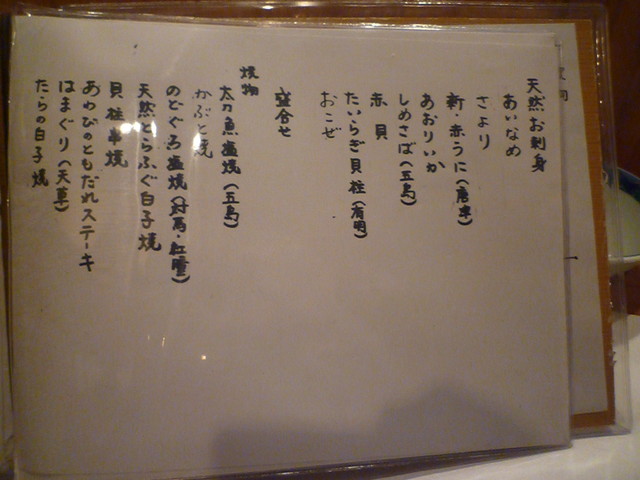 天然お刺身
あいなめ
さより
新・赤うに(唐津)
あおりいか
しめさば(五島)
赤貝
たいらぎ貝柱(有明)
おこぜ
盛合せ
焼物
太刀魚塩焼(五島)
かぶと焼
のどぐろ塩焼(対馬・紅瞳)
天然とらふぐ白子焼
貝柱串焼
あわびのともだれステーキ
はまぐり(天草)
たらの白子焼